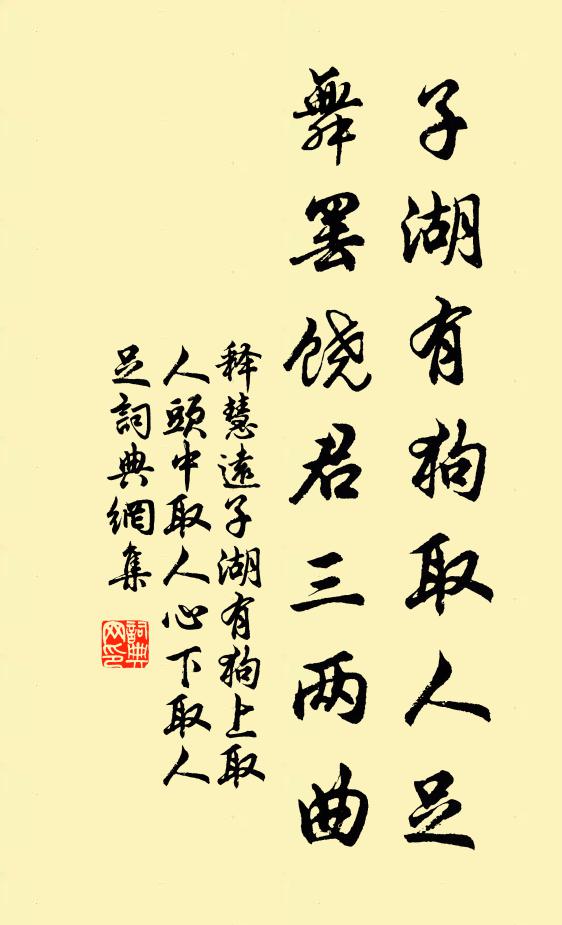 子湖有狗取人足
舞罢饶君三两曲
释慧遠子湖有狗上取
人頭中取人心下取人
足詞典網集
詞典
网印